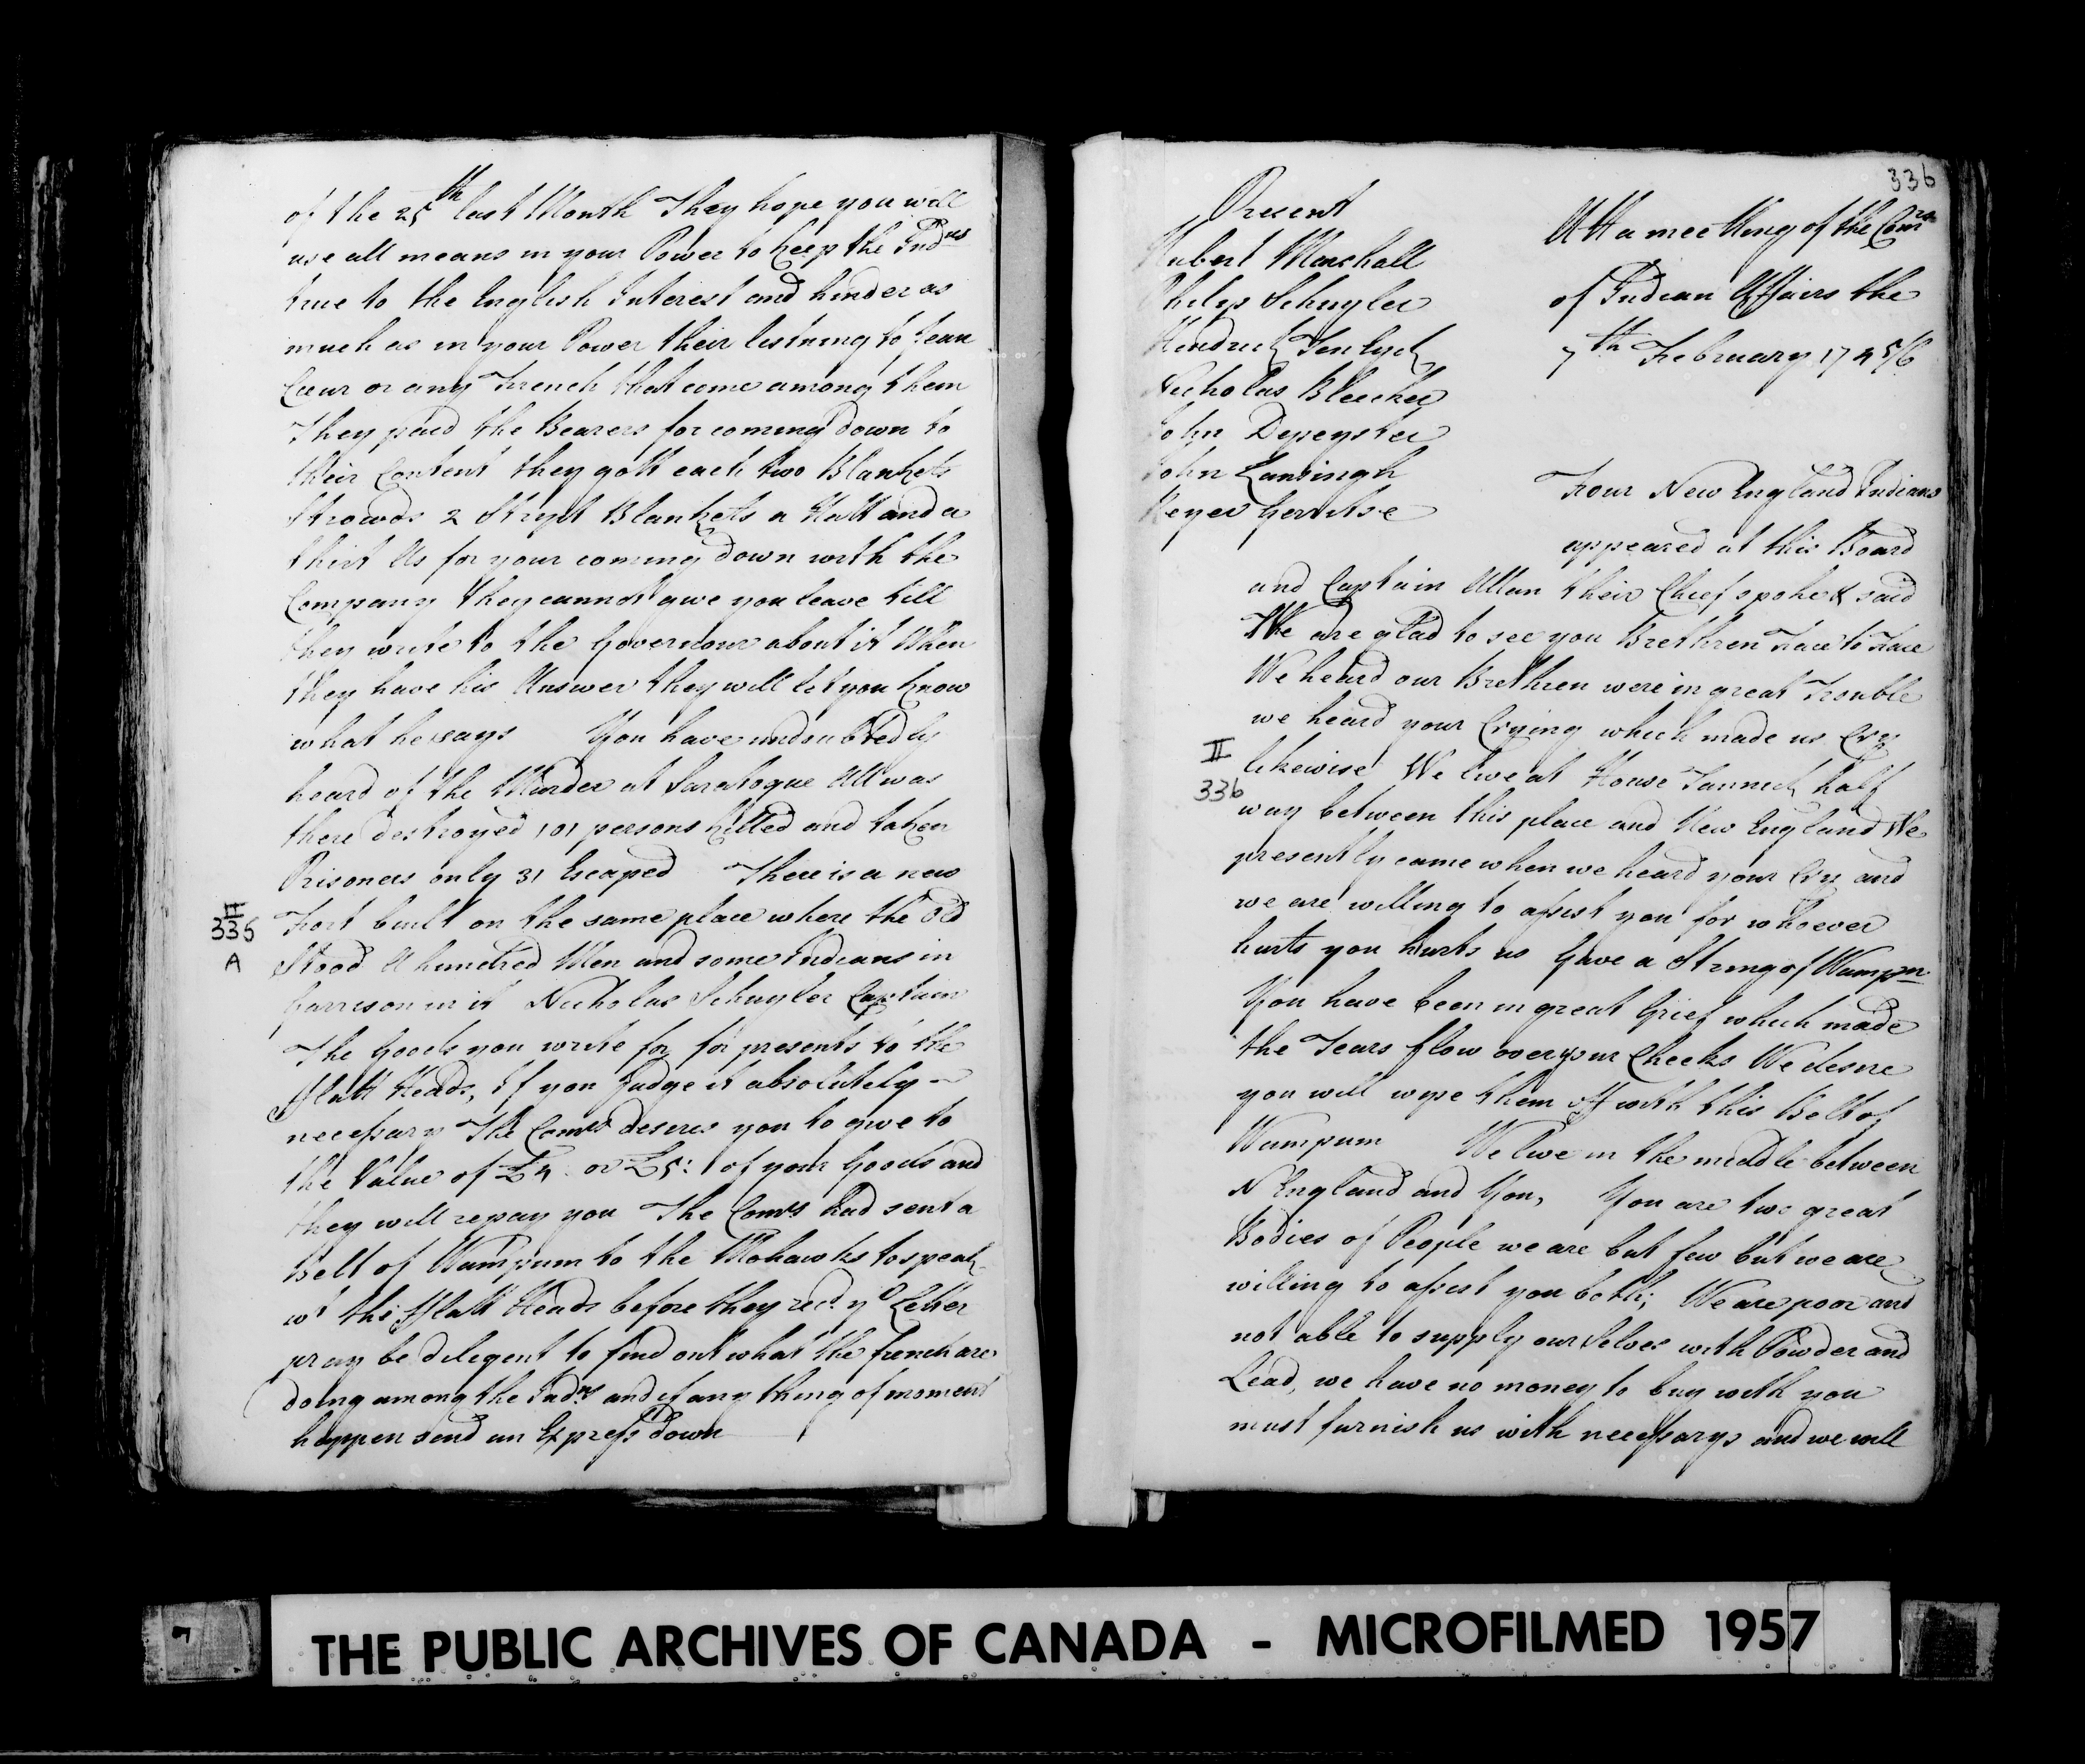 of the 25th last Month They hope you will
use all means in your Power to keep the Indns
true to the English Interest and hinder as
much as in your Power their listning to Jean
Cœur or any French that come among them
They paid the Bearers for coming down to
their Content they gott each two Blankets
Strowds 2 Strypt Blankets a Hatt and a
shirt As for your coming down with the
Company they cannot give you leave till
they write to the Governour about it When
they have his Answer they will let you know
what he says You have undoubtedly
heard of the Murder at Saratogue All was
there destroyed 101 persons killed and taken
Prisoners only 31 Escaped There is a new
II
335
A
Fort built on the same place where the Old
Stood A hundred Men and some Indians in
Garrison in it Nicholas Schuyler Captain
The Goods you write for for presents to the
Flatt Heads, If you Judge it absolutely
necessary The Comrs desires you to give to
the Value of £4 or £5: of your Goods and
they will repay you The Comrs had sent a
Belt of Wampum to the Mohawks to speak
wt the Flatt Heads before they recd. yr Letter
pray be deligent to find out what the french are
doing among the Indns and if any thing of moment
happen send an Express down
336
Present
Hubert Marshall
Philip Schuyler
Hendrick Ten Eyck
Nicholas Bleecker
John Depeyster
John Lansingh
Reyer Gerritse
Att a meetting of the Comrs
of Indian Affairs the
7th February 1745/6
Four New England Indians
appeared at this Board
and Captain Allan their Chief spoke & said
We are glad to see you Brethren Face to Face
We heard our Brethren were in great Trouble
we heard your Crying which made us Cry
II
336
likewise We live at House Tannuck half
way between this place and New England We
presently came when we heard your Cry and
we are willing to assist you for whoever
hurts you hurts us Gave a String of Wampm
You have been in great Grief which made
the Tears flow over your Cheeks We desire
you will wipe them off with this Belt of
Wampum We live in the middle between
N England and You, You are two great
Bodies of People we are but few but we are
willing to assist you both; We are poor and
not able to supply our Selves with Powder and
Lead, we have no money to buy with you
must furnish us with necessarys and we will
THE PUBLIC ARCHIVES OF CANADA - MICROFILMED 1957